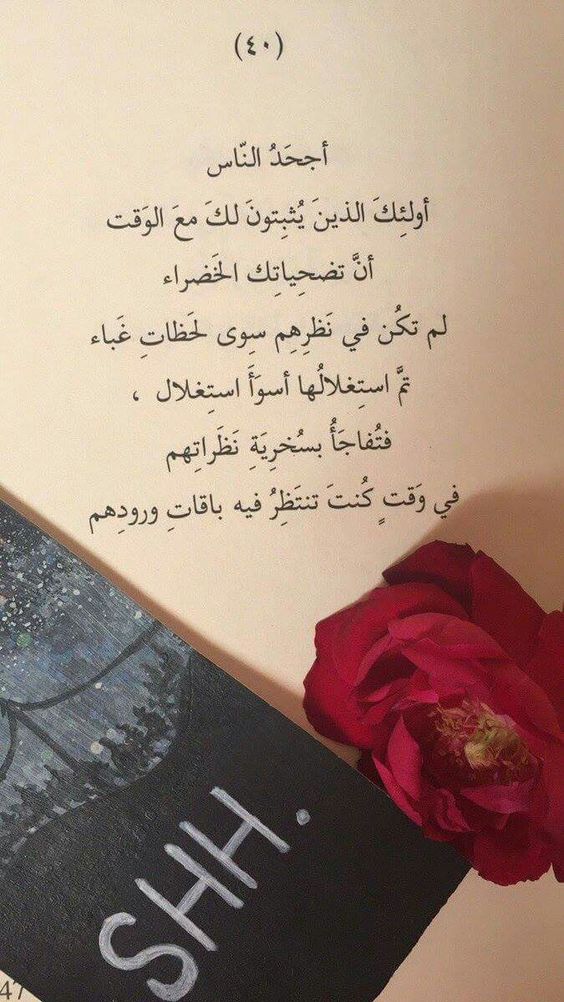 (٤٠)
أجحَدُ النّاس
أولئِكَ الذينَ يُثبِتونَ لكَ معَ الوَقت
أنَّ تضحِياتِك الخَضراء
لم تكُن في نَظرِهِم سِوى لحَظاتِ غَباء
تمَّ استِغلالُها أسوَأَ استِغلال ،
فتُفاجَأُ بسُخرِيَةِ نَظَراتِهم
في وَقتٍ كُنتَ تنتَظِرُ فيه باقاتِ ورودِهم
SHH.
47